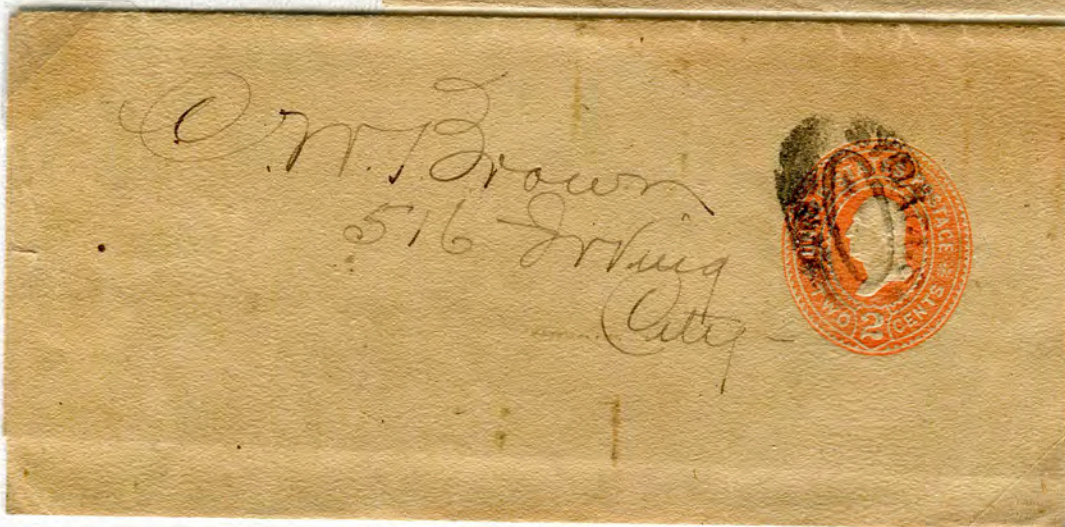 O. W. Brown
516 Irving
City
POSTAGE
TWO 2 CENTS